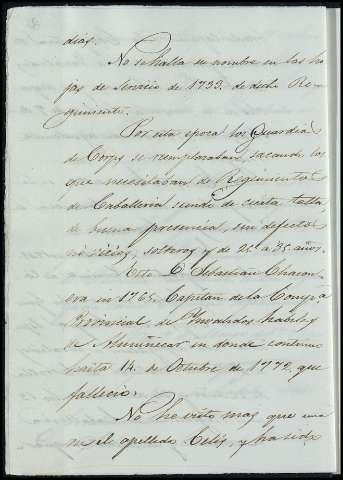 dias.
No se halla su nombre en las ho
jas de servicio de 1733. de dicho Re-
gimiento.
Por esta epoca los Guardias
de Corps se reemplazaban, sacando los
que necesitaban de Regimientos
de Caballeria siendo de cierta talla
de buena presencia, sin defectos
ni vicios, solteros y de 25 a 35 años.
Este D. Sebastian Chacon
era in 1765. Capitan de la Compª
Provincial, de Invalidos habiles
de Almuñecar in donde continuo
hasta 14. de Octubre de 1772, que
fallecio.
No he visto mas que una
el apellido Celis, y ha sido